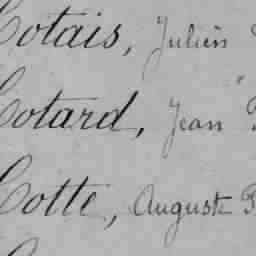 Cotais, Julien
Cotard, Jean
Cotte, Auguste